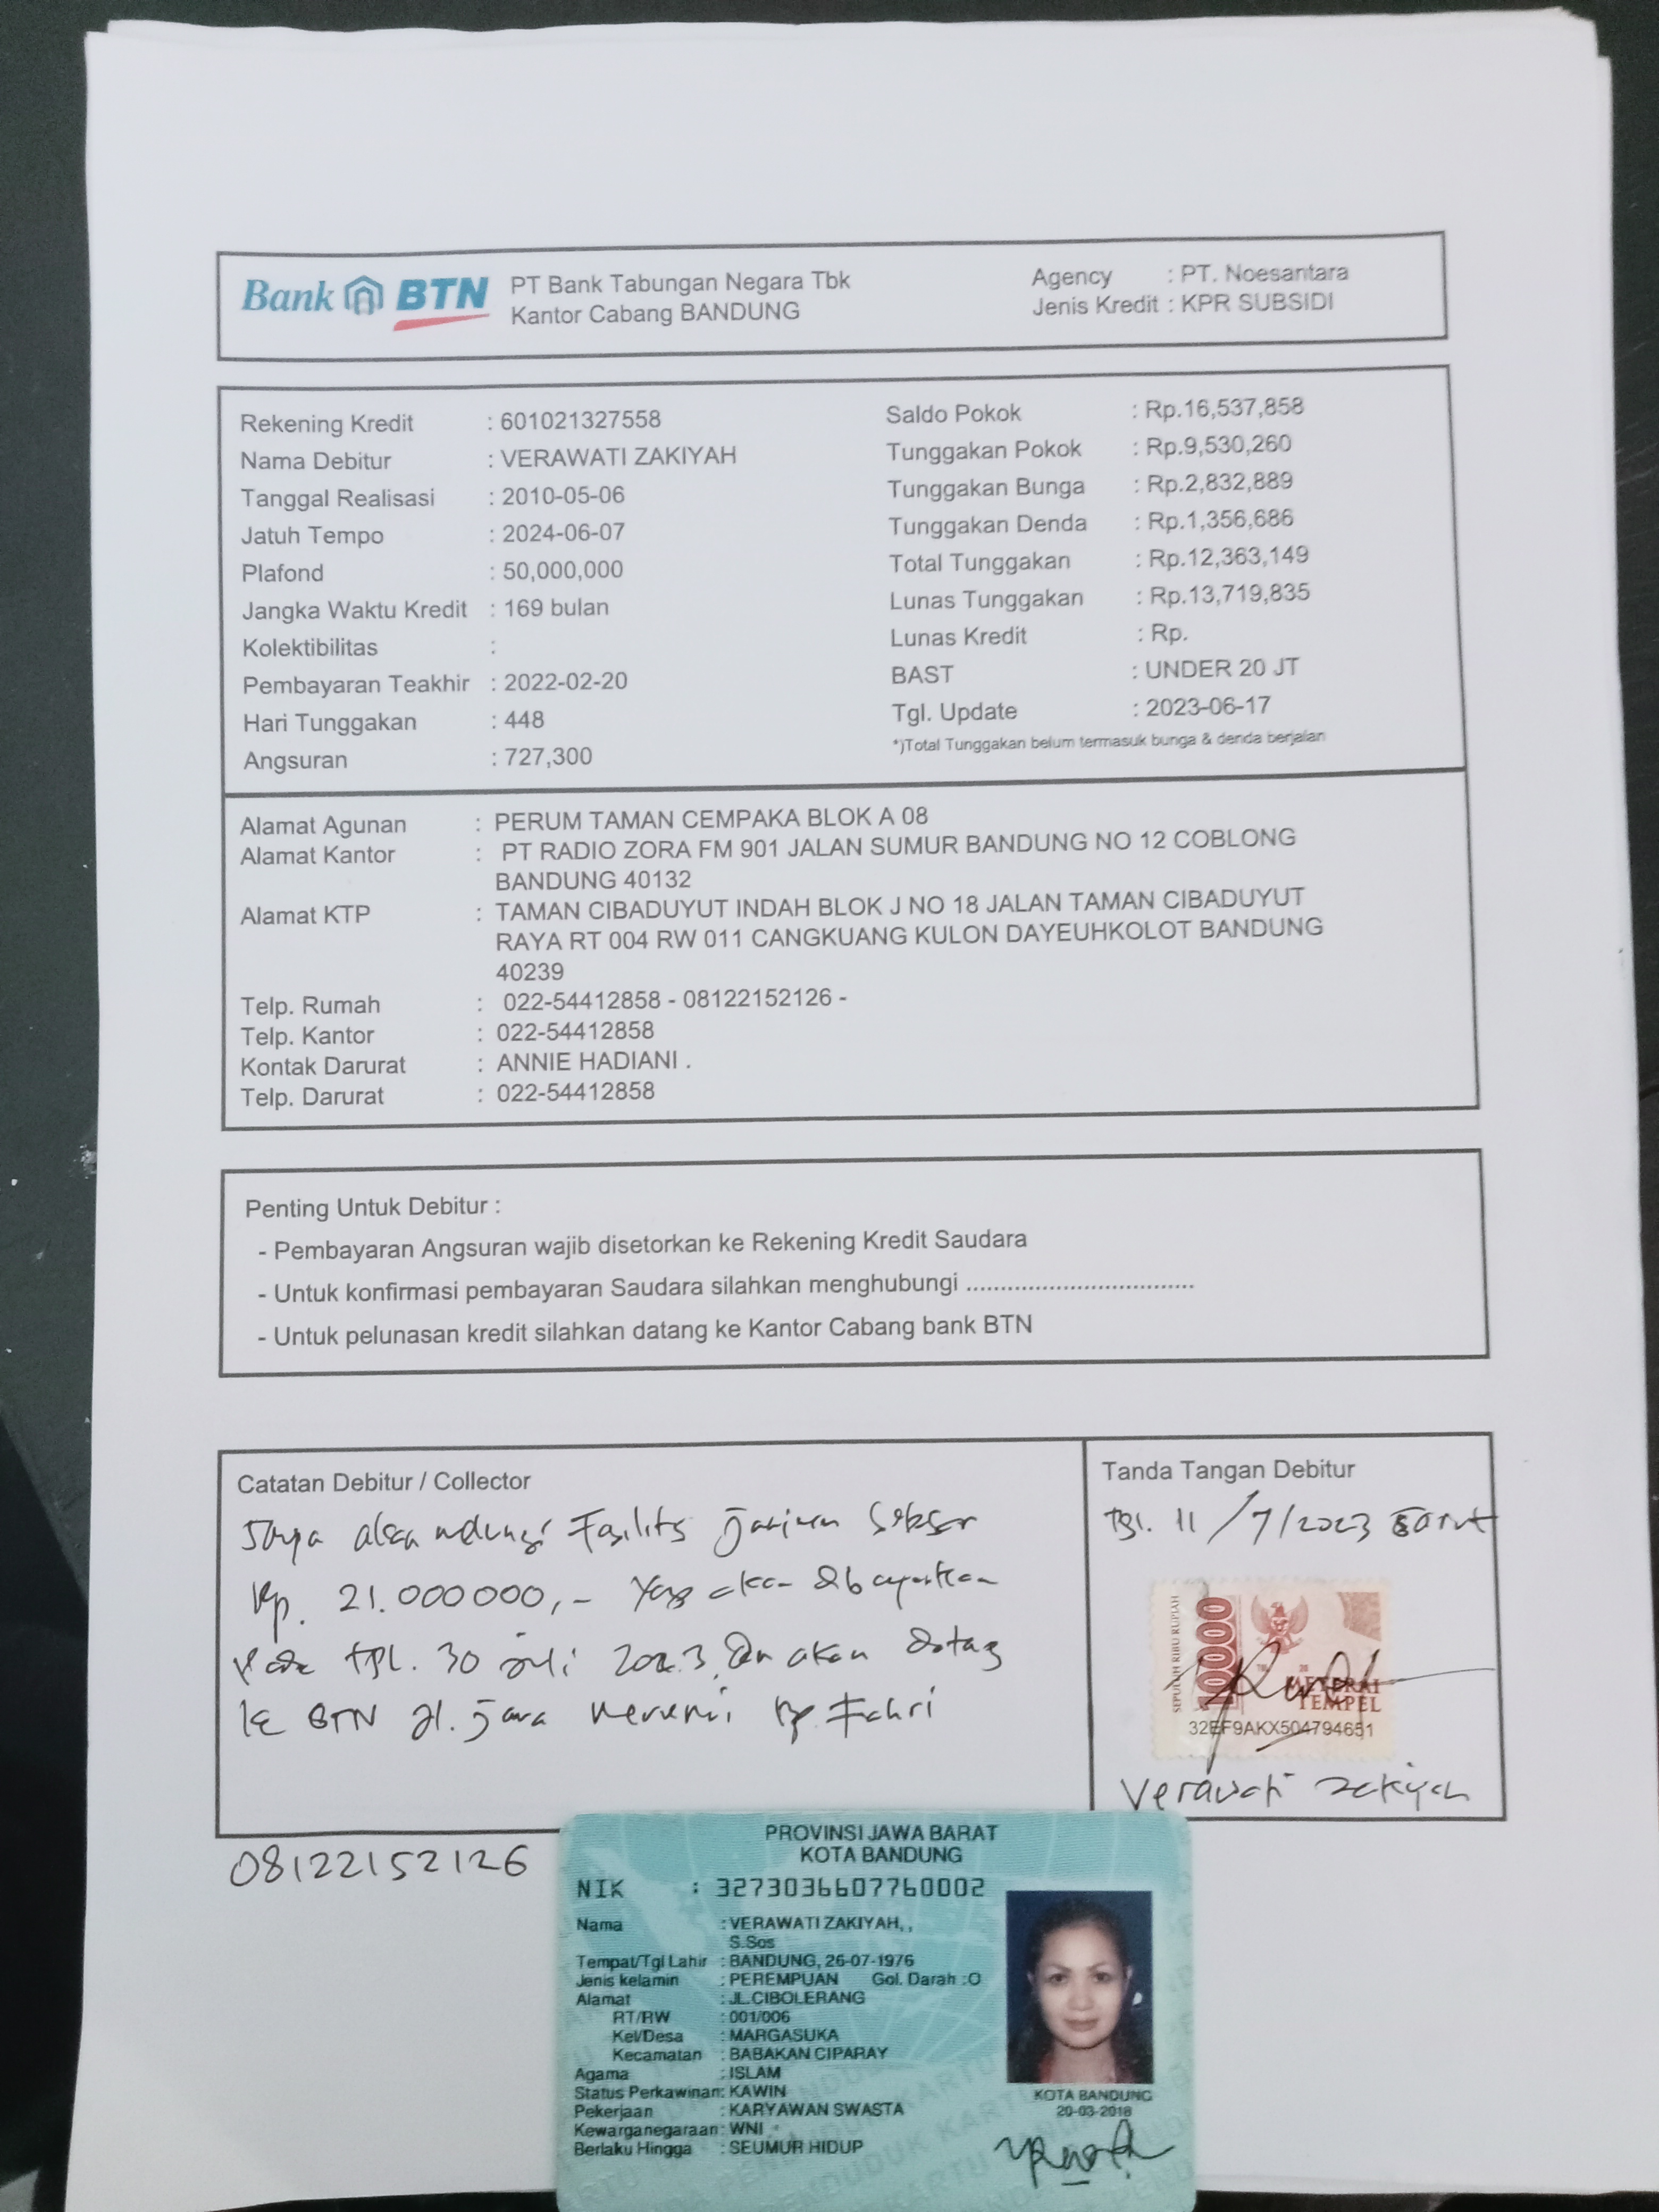 Bank BTN PT Bank Tabungan Negara Tbk
Kantor Cabang BANDUNG
Agency : PT. Noesantara
Jenis Kredit : KPR SUBSIDI
Rekening Kredit : 601021327558
Nama Debitur : VERAWATI ZAKIYAH
Tanggal Realisasi : 2010-05-06
Jatuh Tempo : 2024-06-07
Plafond : 50,000,000
Jangka Waktu Kredit : 169 bulan
Kolektibilitas :
Pembayaran Teakhir : 2022-02-20
Hari Tunggakan : 448
Angsuran : 727,300
Saldo Pokok : Rp.16,537,858
Tunggakan Pokok : Rp.9,530,260
Tunggakan Bunga : Rp.2,832,889
Tunggakan Denda : Rp.1,356,686
Total Tunggakan : Rp.12,363,149
Lunas Tunggakan : Rp.13,719,835
Lunas Kredit : Rp.
BAST : UNDER 20 JT
Tgl. Update : 2023-06-17
*)Total Tunggakan belum termasuk bunga & denda berjalan
Alamat Agunan : PERUM TAMAN CEMPAKA BLOK A 08
Alamat Kantor : PT RADIO ZORA FM 901 JALAN SUMUR BANDUNG NO 12 COBLONG
BANDUNG 40132
Alamat KTP : TAMAN CIBADUYUT INDAH BLOK J NO 18 JALAN TAMAN CIBADUYUT
RAYA RT 004 RW 011 CANGKUANG KULON DAYEUHKOLOT BANDUNG
40239
Telp. Rumah : 022-54412858 - 08122152126 -
Telp. Kantor : 022-54412858
Kontak Darurat : ANNIE HADIANI .
Telp. Darurat : 022-54412858
Penting Untuk Debitur :
- Pembayaran Angsuran wajib disetorkan ke Rekening Kredit Saudara
- Untuk konfirmasi pembayaran Saudara silahkan menghubungi ..................................
- Untuk pelunasan kredit silahkan datang ke Kantor Cabang bank BTN
Catatan Debitur / Collector
Saya akan Fasilits
Rp. 21.000000,- yang akan dibayarkan
pada tgl. 30 Juli 2023 dan akan datang
ke BTN Jl. Jawa menemui Bp. Fahri
Tanda Tangan Debitur
Tgl. 11/7/2023
SEPULUH RIBU RUPIAH
10000
METERAI
TEMPEL
32EF9AKX504794651
Verawati Zakiyah
08122152126
PROVINSI JAWA BARAT
KOTA BANDUNG
NIK : 3273036607760002
Nama : VERAWATI ZAKIYAH, ,
S.Sos
Tempat/Tgl Lahir : BANDUNG, 26-07-1976
Jenis kelamin : PEREMPUAN Gol. Darah :O
Alamat : JL.CIBOLERANG
RT/RW : 001/006
Kel/Desa : MARGASUKA
Kecamatan : BABAKAN CIPARAY
Agama : ISLAM
Status Perkawinan: KAWIN
Pekerjaan : KARYAWAN SWASTA
Kewarganegaraan: WNI
Berlaku Hingga : SEUMUR HIDUP
KOTA BANDUNG
20-03-2018